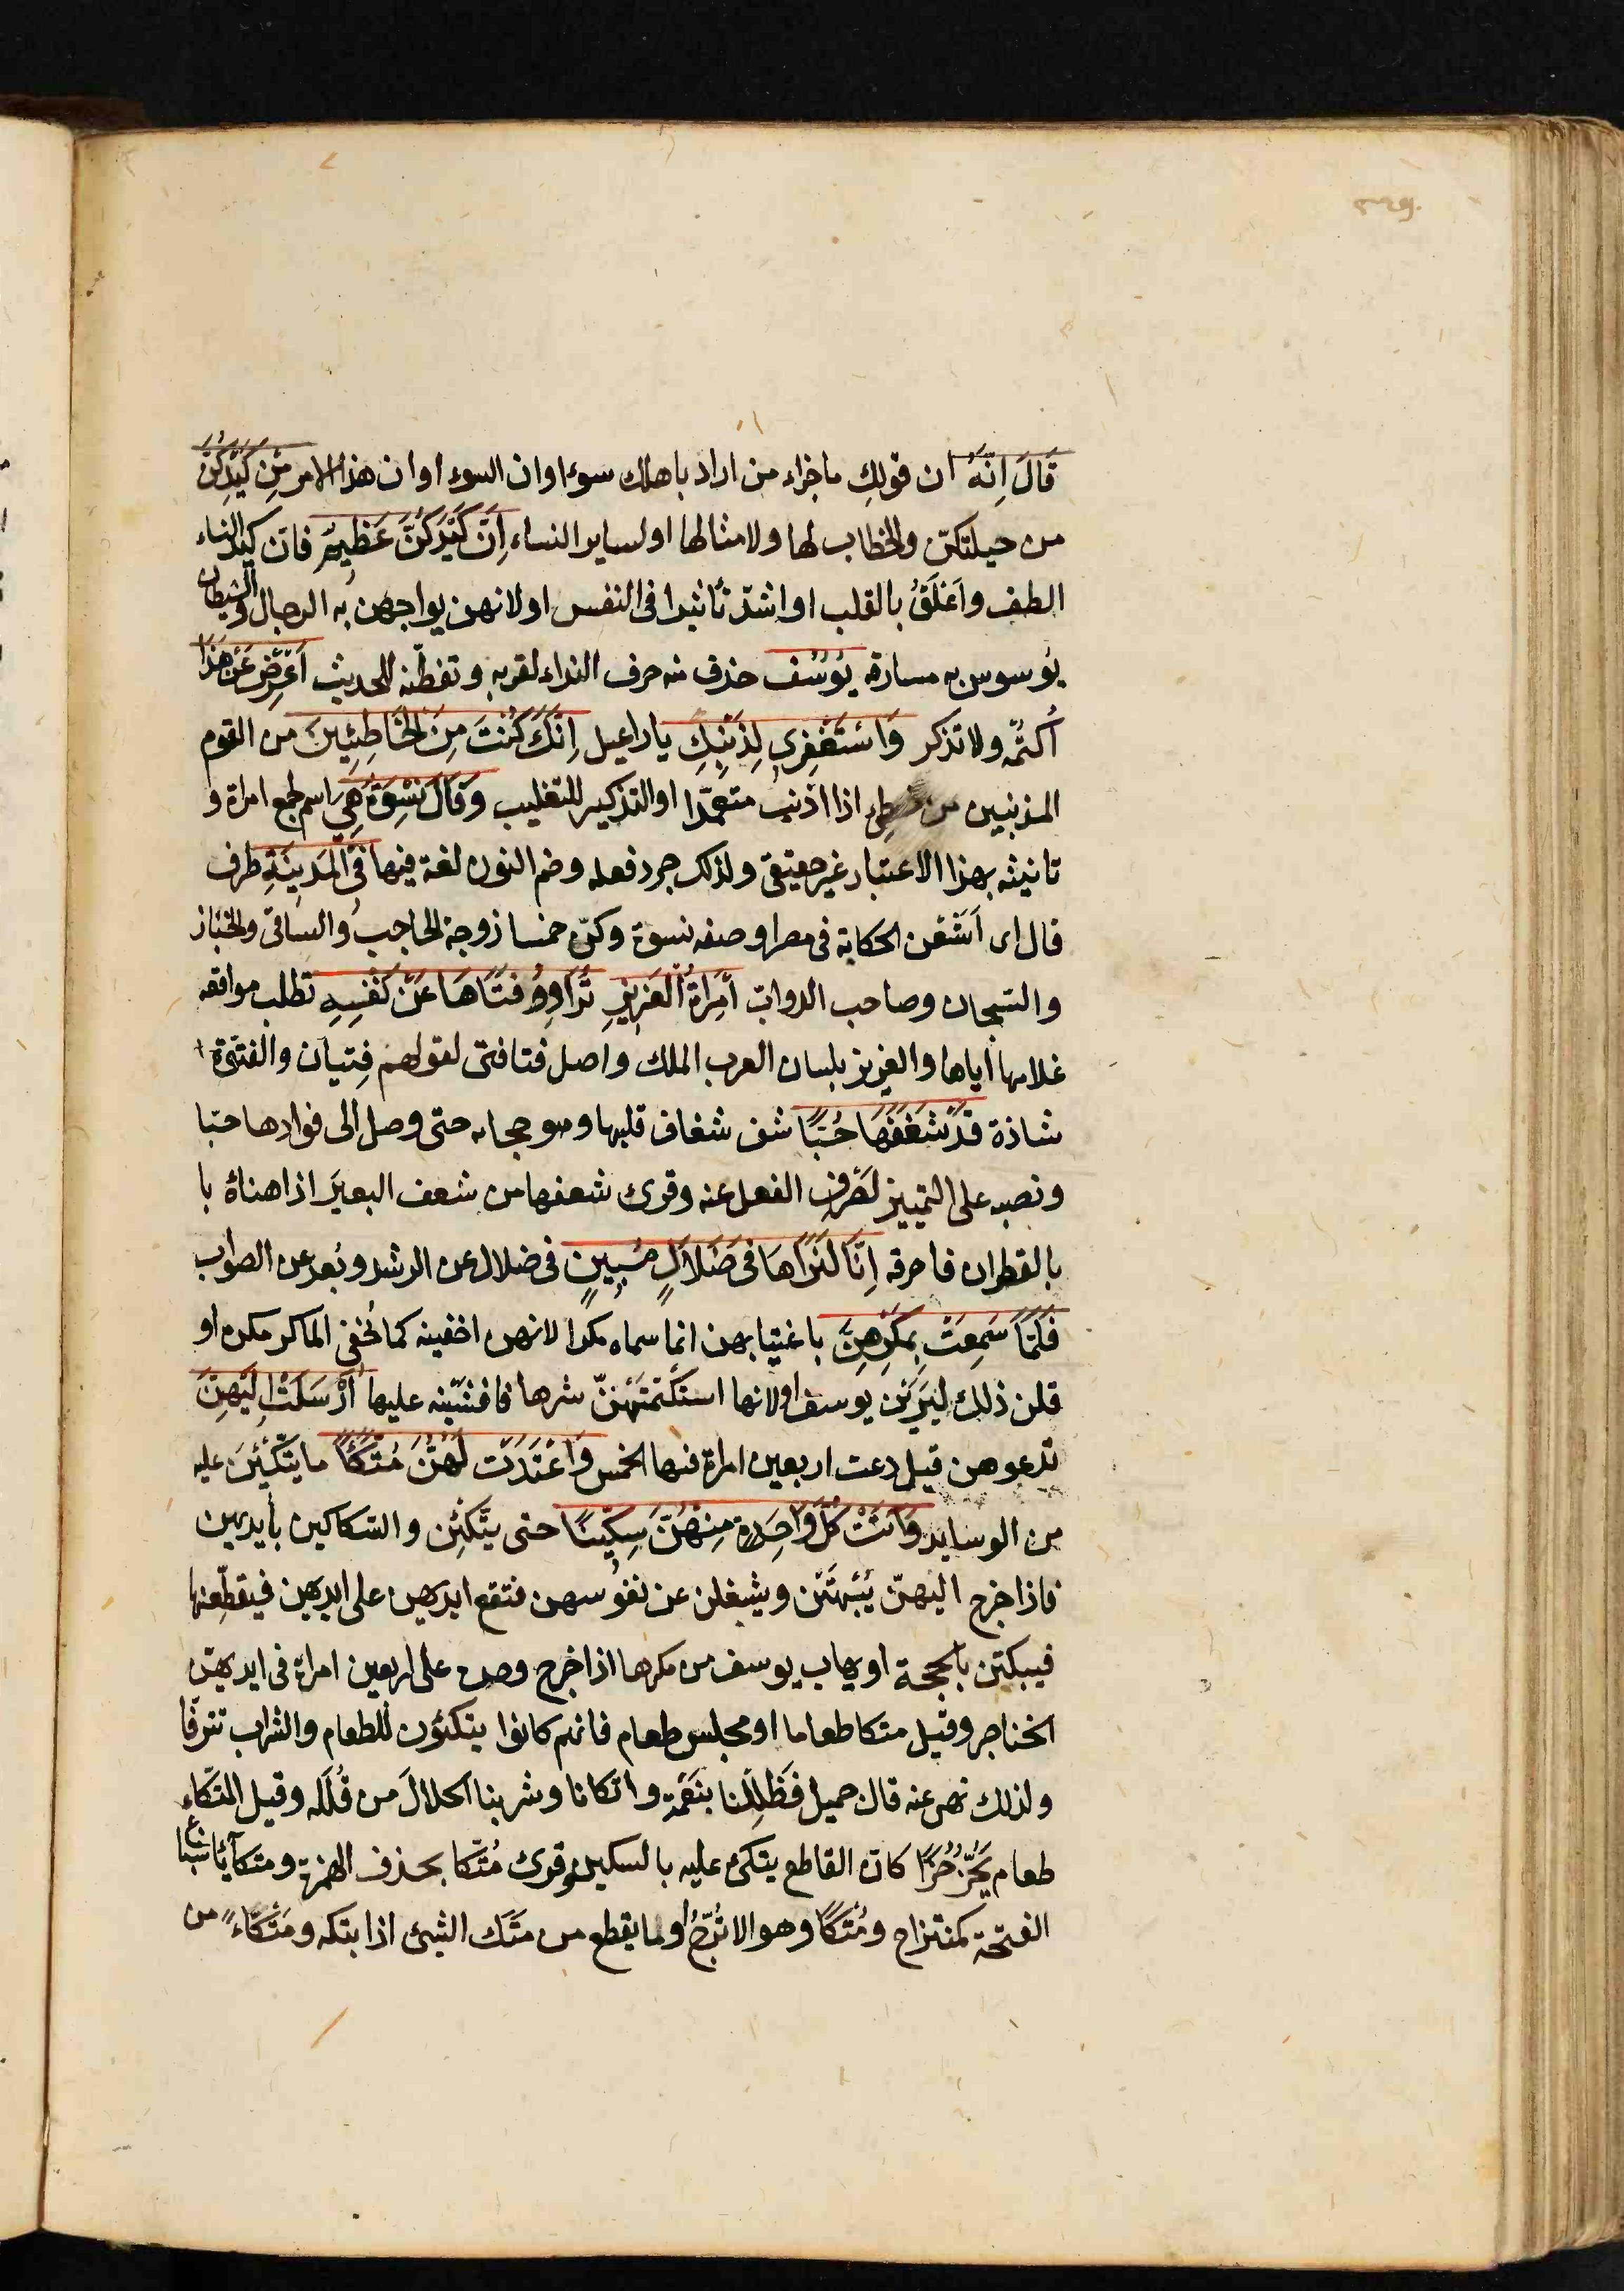 قَالَ اِنَّهُ ان قولكِ ماجزاء من اراد باهلك سوءا وان السوء او ان هذا الامر مِنْ كَيْدِكُنَّ
من حيلتكنّ والخطاب لها ولامثالها او لساير النساء اِنَّ كَيْدَكُنَّ عَظِيمٌ فان كيد النساء
الطف واَعْلَقُ بالقلب او اشدّ تأثيرا فى النفس او لانهن يواجهن به الرجال والشيطان
يُوسوس به مسارقه يُوسُفُ حذف منه حرف النداء لقربه وتفطّنه للحديث اَعْرِضْ عَنْ هَذَا
اُكتُمْه ولا تذكر وَاسْتَغْفِرِى لِذَنْبِكِ ياراعيل اِنَّكَ كُنْتِ مِنَ الخَاطِئِينَ من القوم
المذنبين من خطِىء اذا اذنب متعمّدا والتذكير للتغليب وَقَالَ نِسْوَةٌ هى اسم لجمع امراة و
تانيثه بهذا الاعتبار غير حقيقىّ ولذلك جرد فعله وضم النون لغة فيها فِى الْمَدِينَةِ ظرف
قال اى اَشَعْن الحكاية فى مصر او صفه نسوة وكنّ خمسا زوجة الحاجب والساقىّ والخبّاز
والسّجان وصاحب الدوابّ اَمْرَاَةُ الْعَزِيزِ تُرَاوِدُ فَتَاهَا عَنْ نَفْسِهِ تطلب مواقعه
غلامها اياها والعزيز بلسان العرب الملك واصل فتا فتى لقولهم فِتيان والفتوّة
شاذة قَدْ شَغَفَهَا حُبًّا شق شغاف قلبها وهو حجابه حتى وصل الى فوادها حبّا
ونصبه على التمييز لصَرْفِ الفعل عنه وقرئ شعفها من شعف البعيرَ اذا هناهُ با
بالقطران فاحرقه اِنَّا لَنَرَاهَا فِى ضَلَالٍ مُبِينٍ فى ضلال عن الرشد وبُعد عن الصواب
فَلَمَّا سَمِعَتْ بِمَكْرِهِنَّ باغتيابهن انما سماه مكرا لانهن اخفينه كما يُخفى الماكر مكره او
قلن ذلك ليَريَهن يوسف او لانها استكتمتهنّ سرها فافشَينه عليها اَرْسَلَتْ اِلَيْهِنَّ
تدعوهن قيل دعت اربعين امراة فيها الخمس وَاعْتَدَتْ لَهُنَّ مُتَّكَأً ما يتّكِئنَ عليه
من الوسايد وَآتَتْ كُلَّ وَاحِدَةٍ مِنْهُنَّ سِكِّينًا حتى يتّكئِن والسّكاكين بأيديهن
فاذا خرج اليهنّ يُبْهَتْن ويشغلن عن نفوسهن فتقع ايديهن على ايديهن فيقطّعنها
فيبكتن بالحجة او يهاب يوسف من مكرها اذا خرج وحده على اربعين امراة فى ايديهنّ
الخناجر وقيل متكا طعاما او مجلس طعام فانهم كانوا يتكئون للطعام والشراب تترفّا
ولذلك نهى عنه قال جميل فَظَلِلْنا بنَعْمة واتّكانا وشربنا الحلالَ من قُلَلِه وقيل المتّكاء
طعام يُحَزّ حَزّا كان القاطع يتكئ عليه بالسكين وقرئ مُتّكا بحذف الهمزة ومتكآءً باشباع
الفتحة كمنتزاح ومُتْكًا وهو الاتْرُجّ او ما يقطع من مَتَك الشيئ اذا بتكه ومَتْكَاءً من